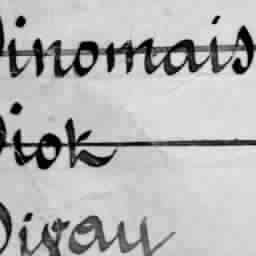 Dinomais
Diok
Divay